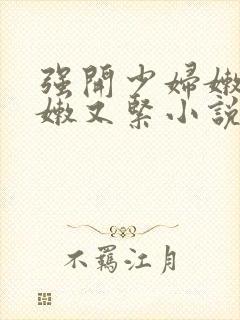 强開少婦嫩
嫩又緊小說
不羈江月